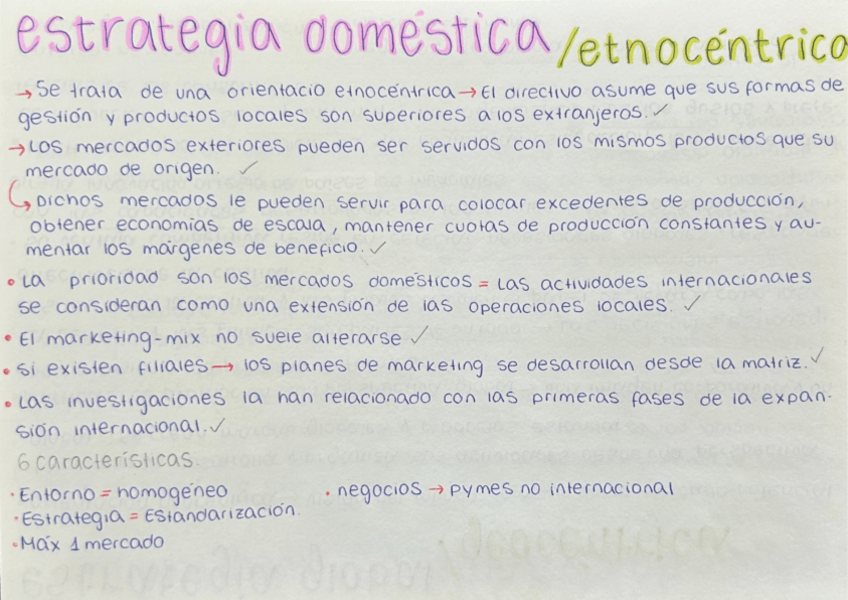 estrategia doméstica /etnocéntrica
→ Se trata de una orientacio etnocéntrica → El directivo asume que sus formas de
gestión y productos locales son superiores a los extranjeros. ✓
→ Los mercados exteriores pueden ser servidos con los mismos productos que su
mercado de origen. ✓
↳ Dichos mercados le pueden servir para colocar excedentes de producción,
obtener economías de escala, mantener cuotas de producción constantes y au-
mentar los márgenes de beneficio. ✓
• La prioridad son los mercados domésticos = Las actividades internacionales
se consideran como una extensión de las operaciones locales. ✓
• El marketing-mix no suele alterarse ✓
• Si existen filiales → los planes de marketing se desarrollan desde la matriz. ✓
• Las investigaciones la han relacionado con las primeras fases de la expan-
sión internacional. ✓
6 características.
• Entorno = homogéneo • negocios → pymes no internacional
• Estrategia = Estandarización.
• Máx 1 mercado